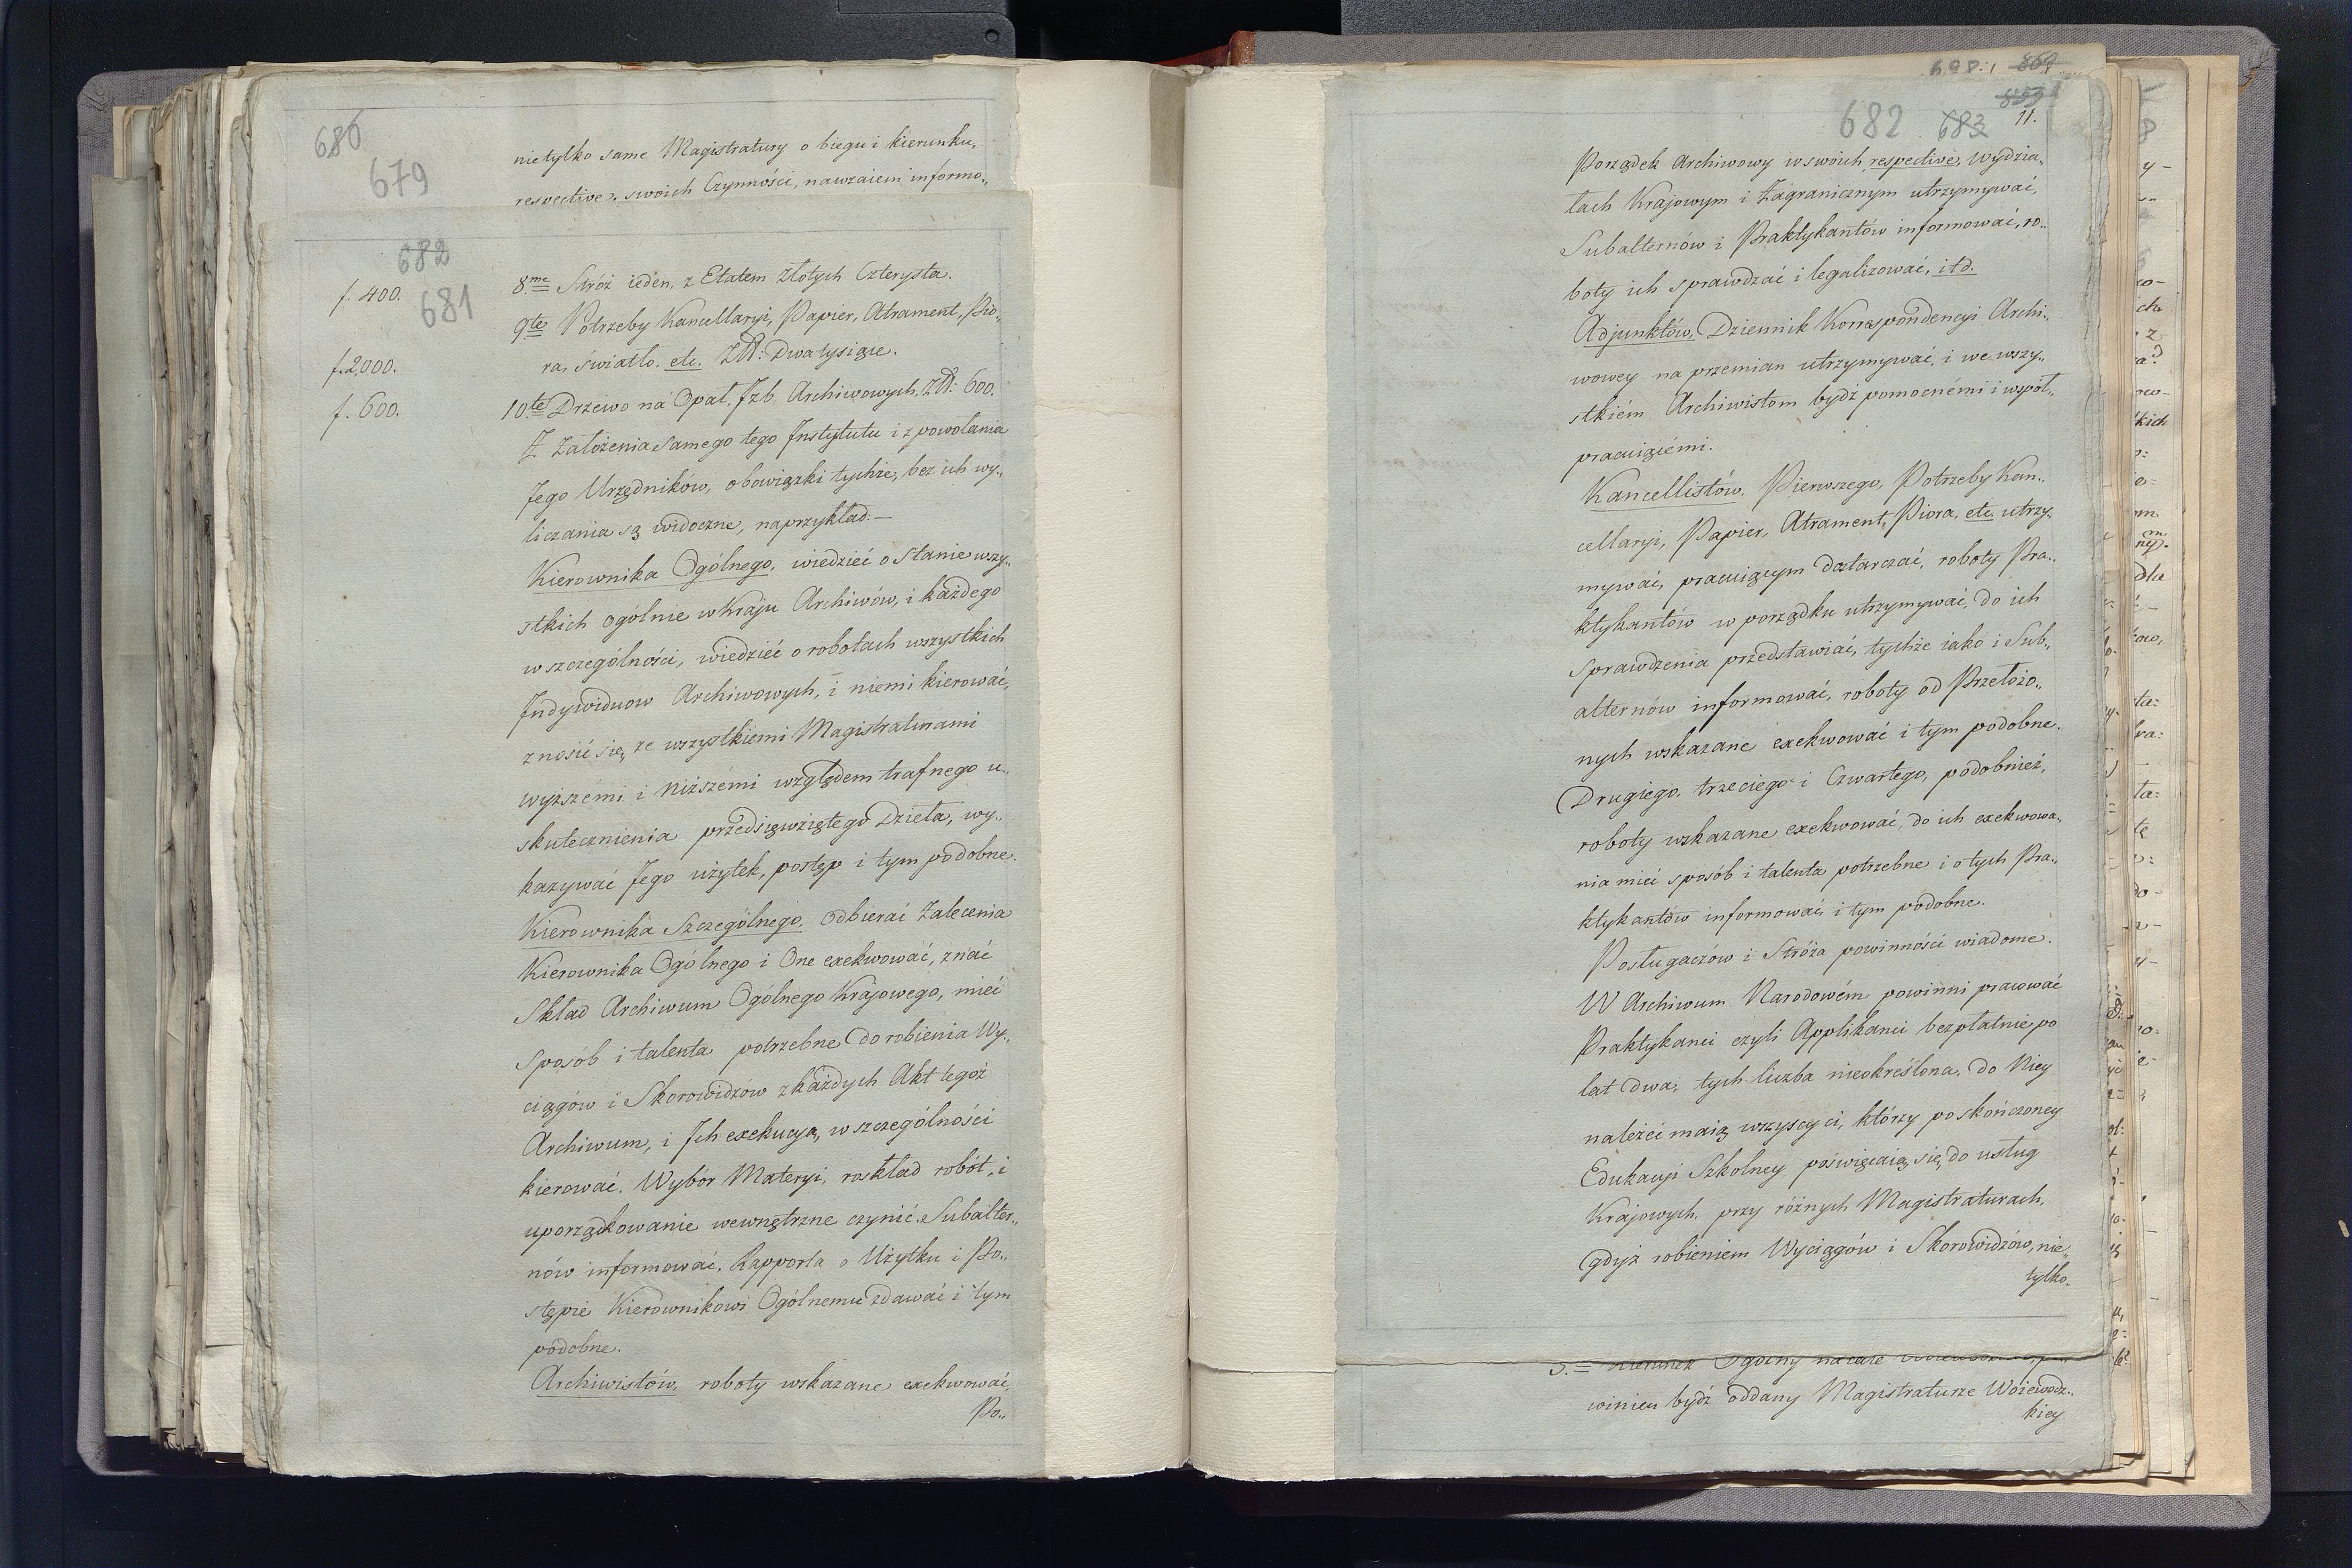 680
679
nietylko same Magistratury o biegu i kierunku,
respective swoich Czynności, nawzaiem informo„
682
681
f. 400.
8me Stróż ieden, z Etatem Złotych Czterysta.
9te Potrzeby Kancellaryi, Papier, Atrament, Pió„
f. 2,000.
ra, światło, etc. Zł: Dwatysiące.
f. 600.
10te Drzewo na Opał, Jzb Archiwowych, Zł: 600.
Z Założenia samego tego Jnstytutu i z powołania
Jego Urzędników, obowiązki tychże, bez ich wy„
liczania są widoczne, naprzykład:—
Kierownika Ogólnego, wiedzieć o Stanie wszy„
stkich ogólnie w Kraju Archiwów, i każdego
w szczególności, wiedzieć o robotach wszystkich
Jndywiduow Archiwowych, i niemi kierować,
znosić się, ze wszystkiemi Magistraturami
wyższemi i niższemi względem trafnego u„
skutecznienia przedsięwziętego Dzieła, wy„
kazywać Jego użytek, postęp i tym podobne.
Kierownika Szczególnego, Odbierać Zalecenia
Kierownika Ogólnego i One exekwować, znać
Skład Archiwum Ogólnego Krajowego, mieć
sposób i talenta potrzebne do robienia Wy„
ciągów i Skorowidzów z każdych Akt tegoż
Archiwum, i Jch exekucyą, w szczególności
kierować. Wybór Materyi, rozkład robót, i
uporządkowanie wewnętrzne czynić. Subalter„
nów informować, Rapporta o Użytku i Po„
stępie Kierownikowi Ogólnemu zdawać i tym
podobne.
Archiwistów, roboty wskazane exekwować,
Po„
698.
869
859
682 683 11.
Porządek Archiwowy w swoich respective, Wydzia„
łach Krajowym i Zagranicznym utrzymywać,
Subalternów i Praktykantów informować, ro„
boty ich sprawdzać i legalizować, itd.
Adjunktów, Dziennik Korrespondencyi Archi„
wowey na przemian utrzymywać, i we wszy„
stkiém Archiwistom bydź pomocnémi i współ„
pracuiącémi.
Kancellistów. Pierwszego, Potrzeby Kan„
cellaryi, Papier, Atrament, Piora, etc. utrzy„
mywać, pracuiącym dostarczać, roboty Pra„
ktykantów w porządku utrzymywać, do ich
sprawdzenia przedstawiać, tychże iako i Sub„
alternów informować, roboty od Przełożo„
nych wskazane exekwować i tym podobne.
Drugiego, trzeciego i Czwartego, podobnież,
roboty wskazane exekwować, do ich exekwowa„
nia mieć sposób i talenta potrzebne i o tych Pra„
ktykantów informować, i tym podobne.
Posługaczów i Stróża powinności wiadome.
W Archiwum Narodowém powinni pracować
Praktykanci czyli Applikanci bezpłatnie, po
lat dwa, tych liczba nieokreślona. do Niey
należeć maią wszyscy ci, którzy po skończoney
Edukacyi Szkolney poświęcaią się, do usług
Krajowych, przy różnych Magistraturach,
gdyż robieniem Wyciągów i Skorowidzów, nie„
tylko
Kierunek Ogólny na całe
winien bydź oddany Magistraturze Wojewódz„
kiey